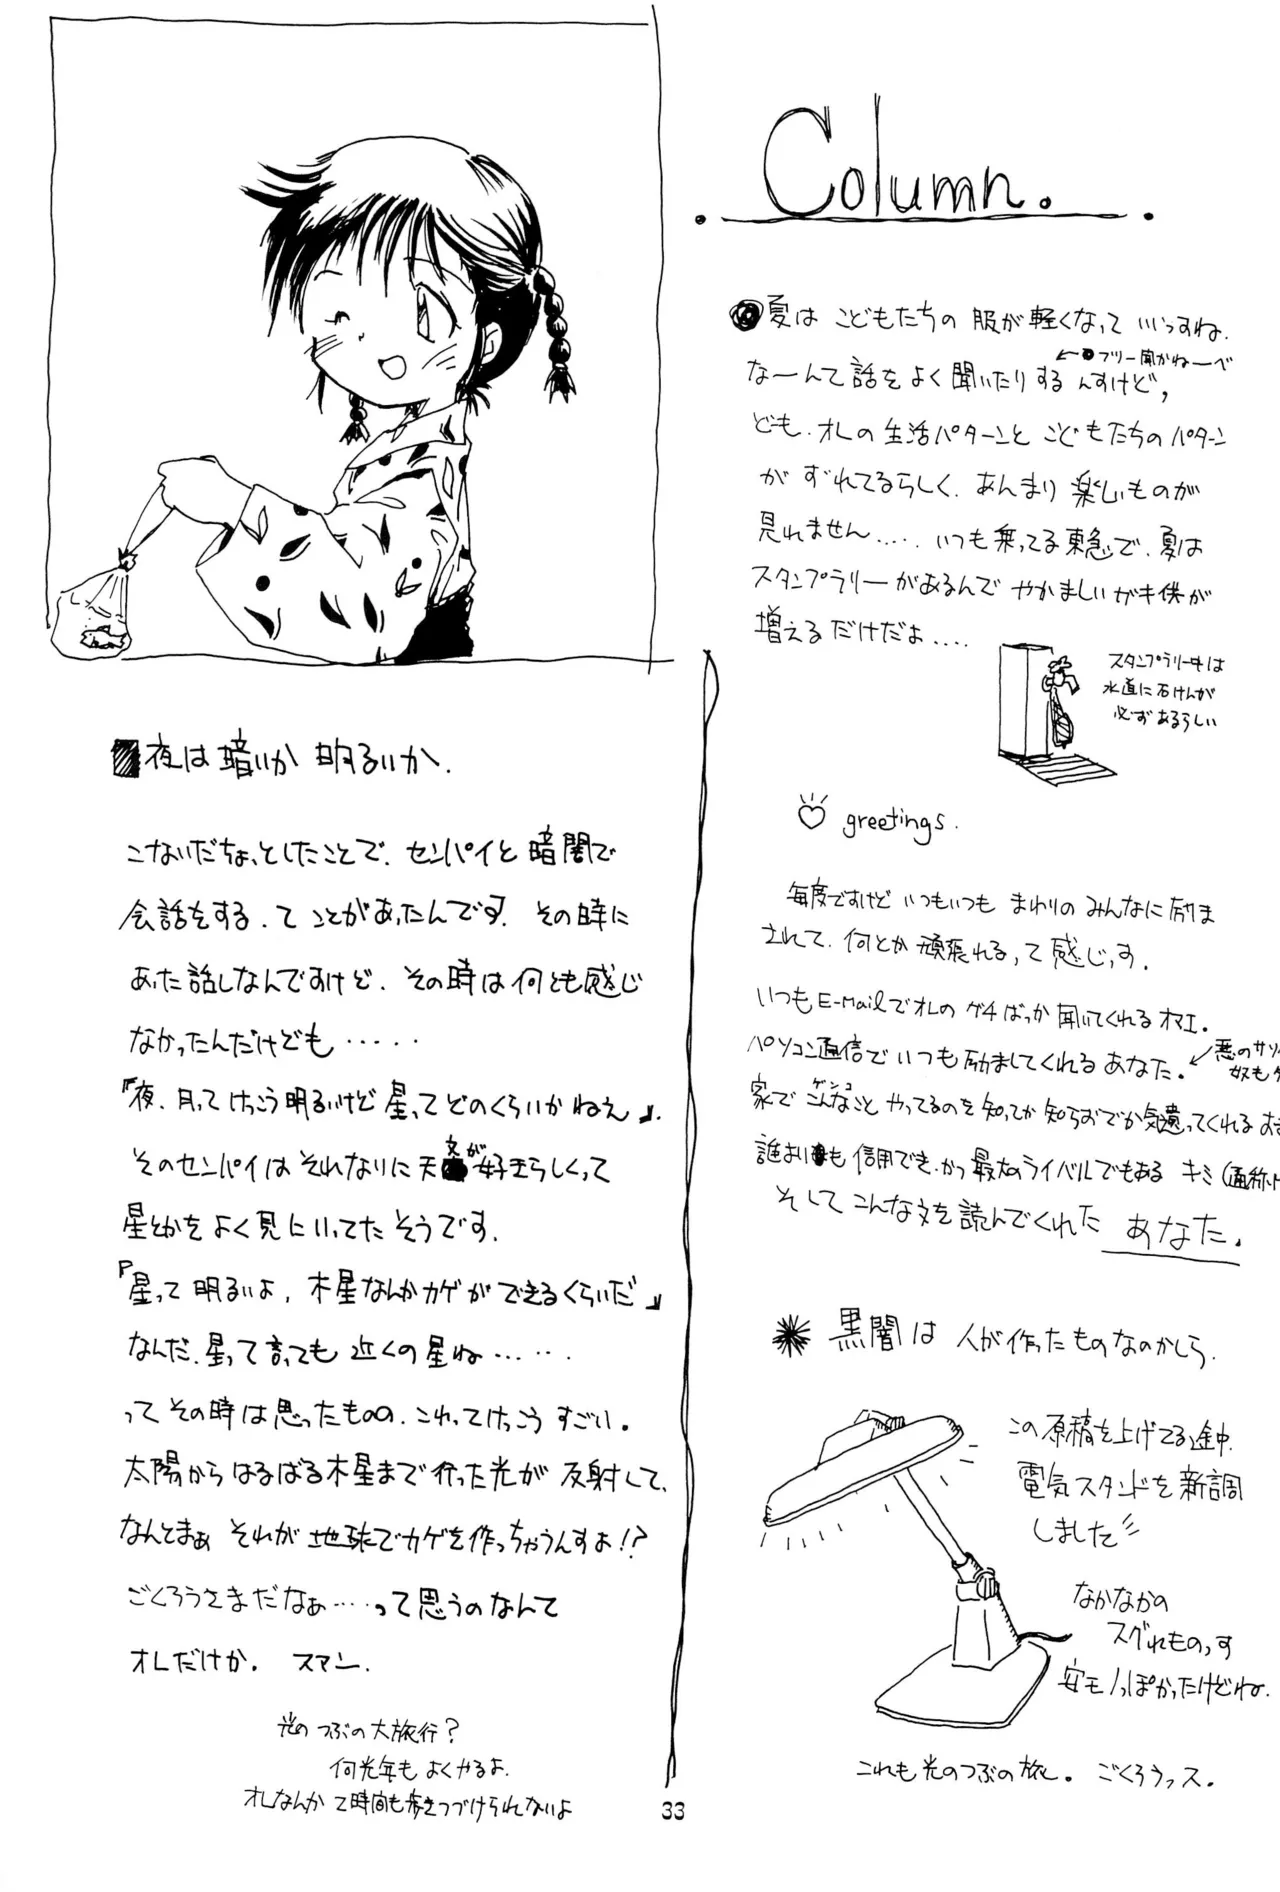 Column.
夏は こどもたちの 服が 軽くなって いいっすね.
←●フリー聞かねーべ
なーんて話をよく聞いたりするんすけど,
ども.オレの生活パターンと こどもたちのパターン
が ずれてるらしく.あんまり 楽しいものが
見れません..... いつも乗ってる東急で.夏は
スタンプラリーがあるんで やかましいガキ供が
増えるだけだよ....
スタンプラリー中は
水道に石けんが
必ずあるらしい
greetings.
毎度ですけど いつもいつも まわりの みんなに励ま
されて.何とか頑張れるって感じっす.
いつもE-MailでオレのグチばっかЯ聞いてくれるオマエ.
パソコン通信で いつも励ましてくれる あなた.
←悪のサソ
奴も
家で こんなこと やってるのを 知ってか知らおでか気遣ってくれる
ゲンコ
誰よりも 信用でき.かつ最大のライバルでもある キミ(通称
そして こんな文を読んでくれた あなた.
黒闇は 人が作ったものなのかしら.
この原稿を上げてる途中.
電気スタンドを新調
しました
なかなかの
スグれものっす
安モノっぽかったけどね.
これも光のつぶの旅し. ごくろうっス.
夜は暗いか 明るいか.
こないだちょっとしたことで.センパイと暗闇で
会話をする.てことがあったんです. その時に
あった話しなんですけど. その時は何とも感じ
なかったんだけども.....
『夜.月ってけっこう明るいけど 星ってどのくらいかねえ』.
そのセンパイは それなりに天文が好きらしくって
星とかをよく見にいってたそうです.
『星って明るいよ, 木星なんかカゲができるくらいだ』
なんだ.星って言っても 近くの星ね.....
って その時は思ったものの.これってけっこう すごい.
太陽から はるばる木星まで行った光が 反射して.
なんとまぁ それが 地球でカゲを作っちゃうんすよ!?
ごくろうさまだなぁ....って思うのなんて
オレだけか. スマン.
光の つぶの大旅行?
何光年も よくやるよ.
オレなんか 2時間も歩きつづけられないよ
33